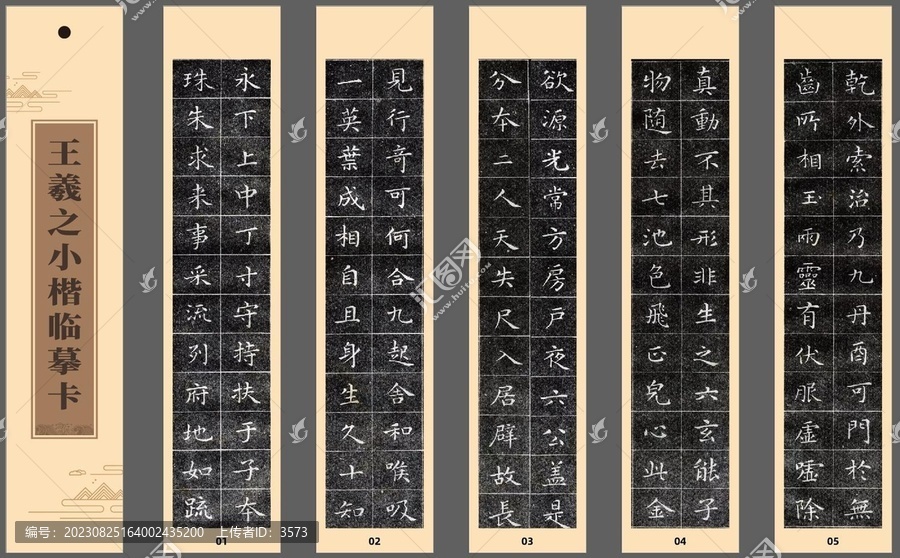 王羲之小楷临摹卡
永下上中丁寸守持扶于子本
珠朱求来事采流列府地如疏
01
見行奇可何合九起舍和喉吸
一英葉成相自且身生久十知
02
欲源光常方房戶夜六公盖是
分本二人天失尺入居辟故長
03
真動不其形非生之六玄能子
物随去七池色飛正皃心此金
04
乾外索治乃九丹酉可門於無
齒所相玉雨靈有伏服虚嘘除
05
编号：20230825164002435200 上传者ID：3573
汇图网
www.huitu.com